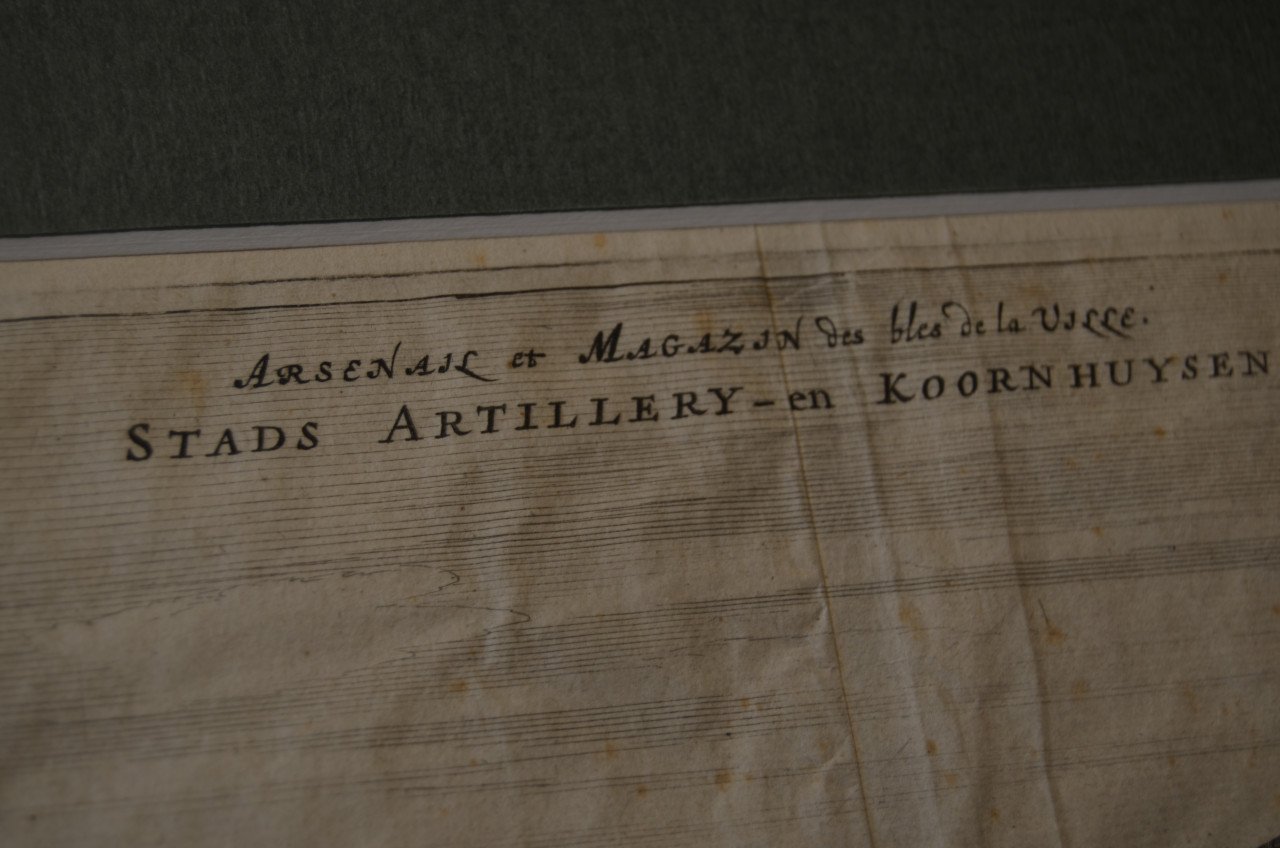 ARSENAIL et MAGAZIN des bles de la VILLE.
STADS ARTILLERY-en KOORNHUYSEN